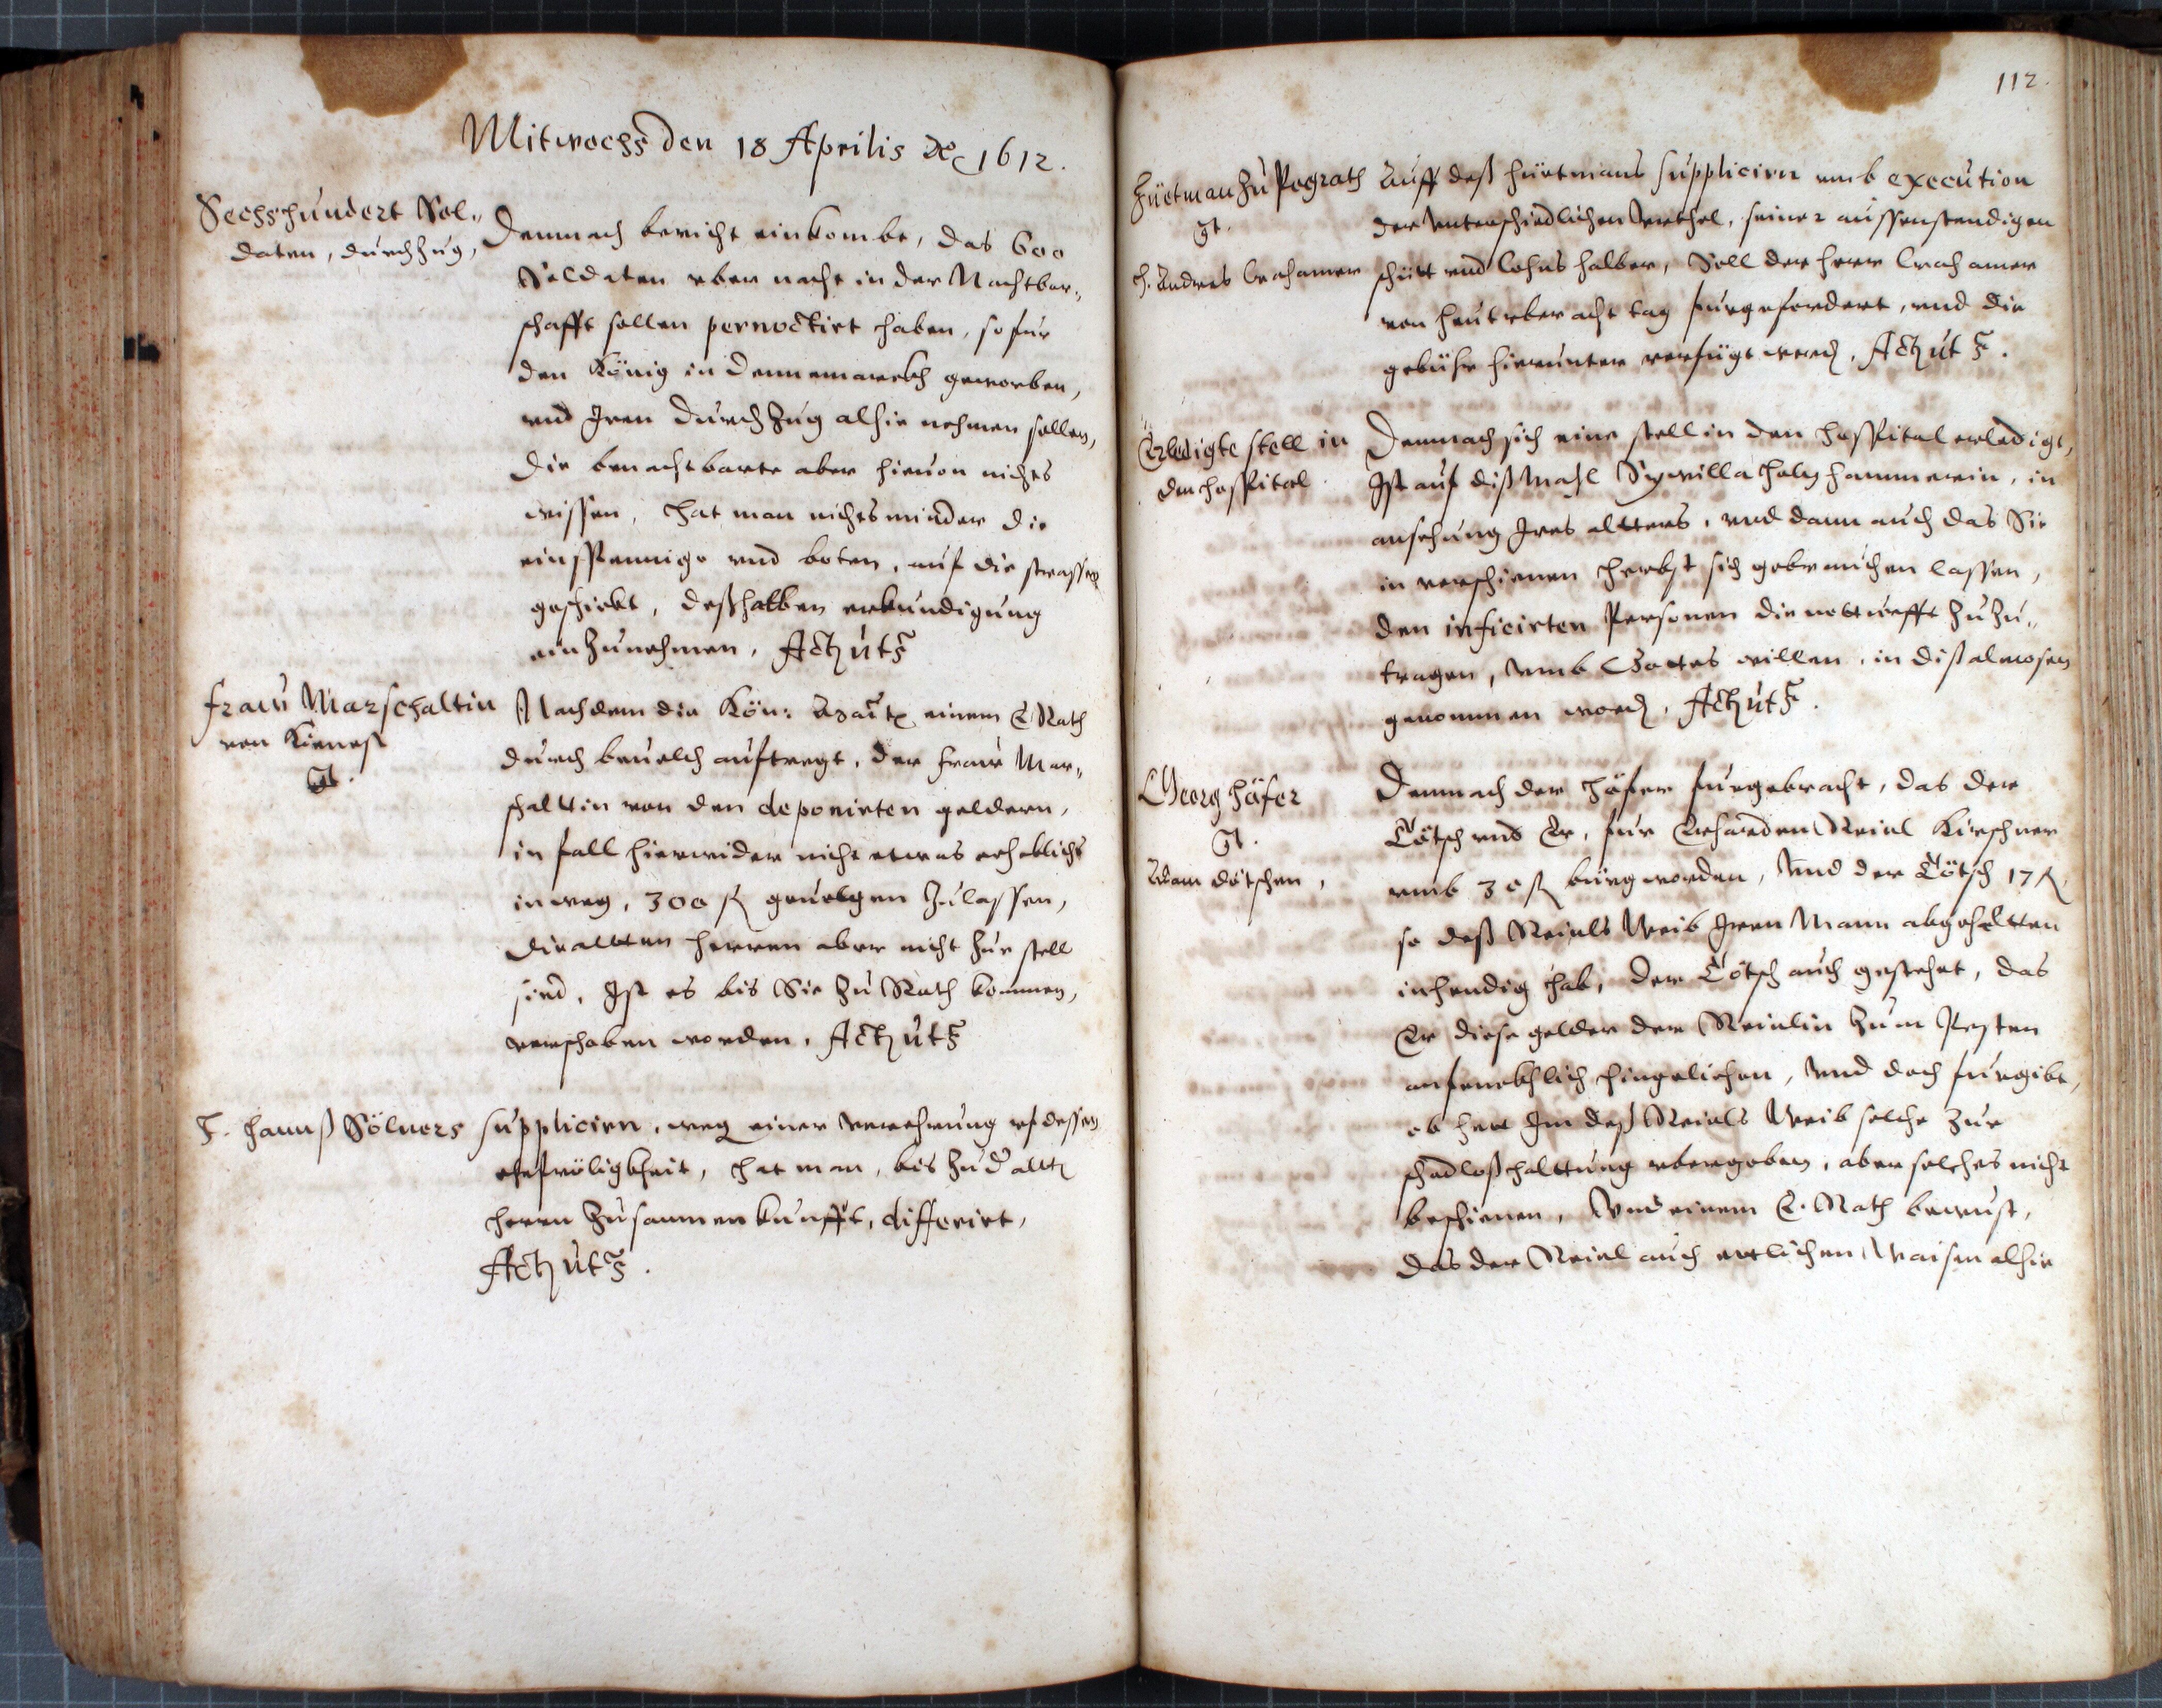 Mitwochs den 18 Aprilis Ao 1612.
Sechshundert Sol„
daten, durchzug,
Demnach bericht einkombt, das 600
Soldaten vber nacht in der Nachtbar„
schafft sollen pernoctirt haben, so fur
den König in Dennemarckh geworben,
vnd Iren Durchzug alhie nehmen sollen,
die benachtbarte aber hieuon nichts
wissen, hat man nichts minder die
einspennige vnd boten, auf die strassen
geschickt, deßhalben erkundigung
einzunehmen. Act: ut s:
fraw Marschaltin
von
Nachdem die Kön: einem E Rath
durch beuelch auftregt, der fraw Mar„
schaltin von den deponirten geldern,
in fall hierwider nicht etwas erheblichs
inweg, 300 fl geuolgen zulassen,
die alten herren aber nicht zur stell
sind, Ist es bis Sie zu Rath kommen,
verschoben worden. Act: ut s:
F. hannß Sölners
supplicirn, weg einer verehrung vf dessen
hat man, bis zu d altt
herrn zusammenkunfft, differirt,
Act: ut s:.
112.
Hüetman zu Pograth
Auff deß hüetmans supplicirn vmb execution
der vnterschiedlichen vrthel, seiner aussenstendigen
H. Andres Crahamer
schütt vnd lohns halber, Soll der herr Crahamer
von heut vber acht tag furgefordert, vnd die
gebühr hierunter verfügt werd. Act: ut s:.
Erledigte stell in
den hospital
Demnach sich eine stell in den hospital erledigt,
Ist auf dißmahl Sywilla Holzhammerin, in
ansehung Ires altters, vnd dann auch das Sie
in verschienen herbst sich gebrauchen lassen,
den inficirten Personen die notturfft zuzu„
tragen, vmb Gottes willen, in diß almosen
genommen word. Act: ut s:.
Georg Häfer
Adam Dötschen,
Demnach der Häfer furgebracht, das der
Tötsch vnd Er, fur Erharden Reinl Kirschner
vmb 30 fl burg worden, Vnd der Tötsch 17 fl,
so deß Reinls Weib Iren Mann abgehaltten
inhendig hab, der Tötsch auch gestehet, das
Er diese gelder der Reinlin zum Posten
anfenckhlich hingeliehen, vnd doch furgibt,
ob het Im deß Reinls Weib solche zur
schadloßhalttung vbergeben, aber solches nicht
beschienen, Vnd einem E. Rath bewust,
das der Reinl auch ettlichen Waisen alhie